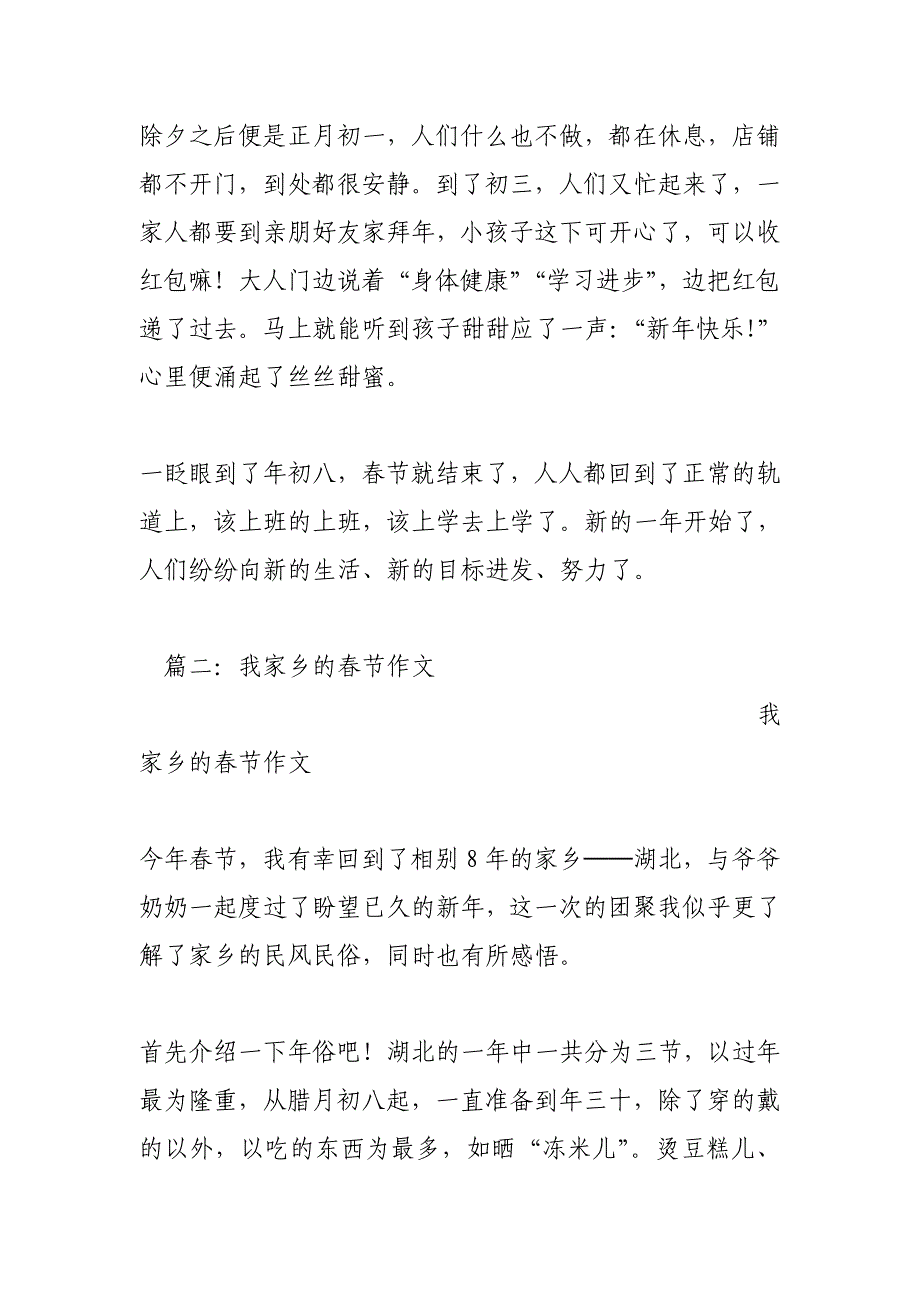 除夕之后便是正月初一，人们什么也不做，都在休息，店铺
都不开门，到处都很安静。到了初三，人们又忙起来了，一
家人都要到亲朋好友家拜年，小孩子这下可开心了，可以收
红包嘛！大人门边说着“身体健康”“学习进步”，边把红包
递了过去。马上就能听到孩子甜甜应了一声：“新年快乐！”
心里便涌起了丝丝甜蜜。
一眨眼到了年初八，春节就结束了，人人都回到了正常的轨
道上，该上班的上班，该上学去上学了。新的一年开始了，
人们纷纷向新的生活、新的目标进发、努力了。
篇二：我家乡的春节作文
我
家乡的春节作文
今年春节，我有幸回到了相别 8 年的家乡——湖北，与爷爷
奶奶一起度过了盼望已久的新年，这一次的团聚我似乎更了
解了家乡的民风民俗，同时也有所感悟。
首先介绍一下年俗吧！湖北的一年中一共分为三节，以过年
最为隆重，从腊月初八起，一直准备到年三十，除了穿的戴
的以外，以吃的东西为最多，如晒“冻米儿”。烫豆糕儿、